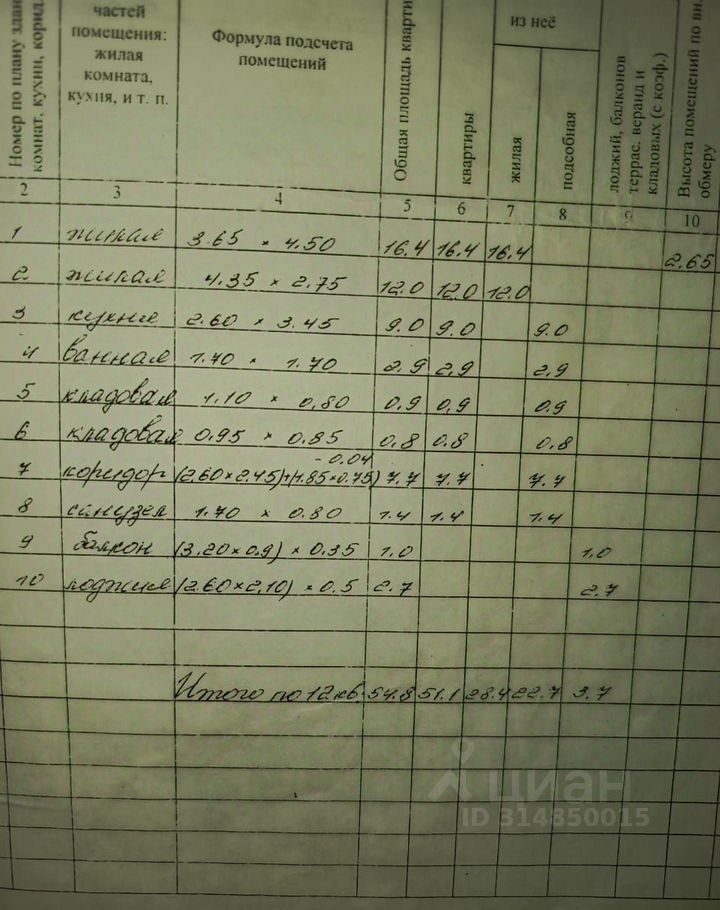 Номер по плану здан.
комнат, кухни, корид.
частей
помещения:
жилая
комната,
кухня, и т. п.
Формула подсчета
помещений
Общая площадь кварти
из неё
квартиры
жилая
подсобная
лоджий, балконов
террас, веранд и
кладовых (с коэф.)
Высота помещений по вн.
обмеру
2 3 4 5 6 7 8 9 10
1 жилая 3.65 × 4.50 16.4 16.4 16.4 2.65
2 жилая 4.35 × 2.75 12.0 12.0 12.0
3 кухня 2.60 × 3.45 9.0 9.0 9.0
4 ванная 1.70 × 1.70 2.9 2.9 2.9
5 кладовая 1.10 × 0,80 0.9 0,9 0.9
6 кладовая 0.95 × 0.85 0.8 0.8 0.8
- 0.04
7 коридор (2.60×2.45)+(1.85×0.75) 7.7 7.7 7.7
8 санузел 1.70 × 0.80 1.4 1.4 1.4
9 балкон (3.20×0.9) × 0.35 1.0 1.0
10 лоджия (2.60×2.10) × 0.5 2.7 2.7
Итого по 12 кв. 54.8 51.1 28.4 22.7 3.7
циан
ID 314350015